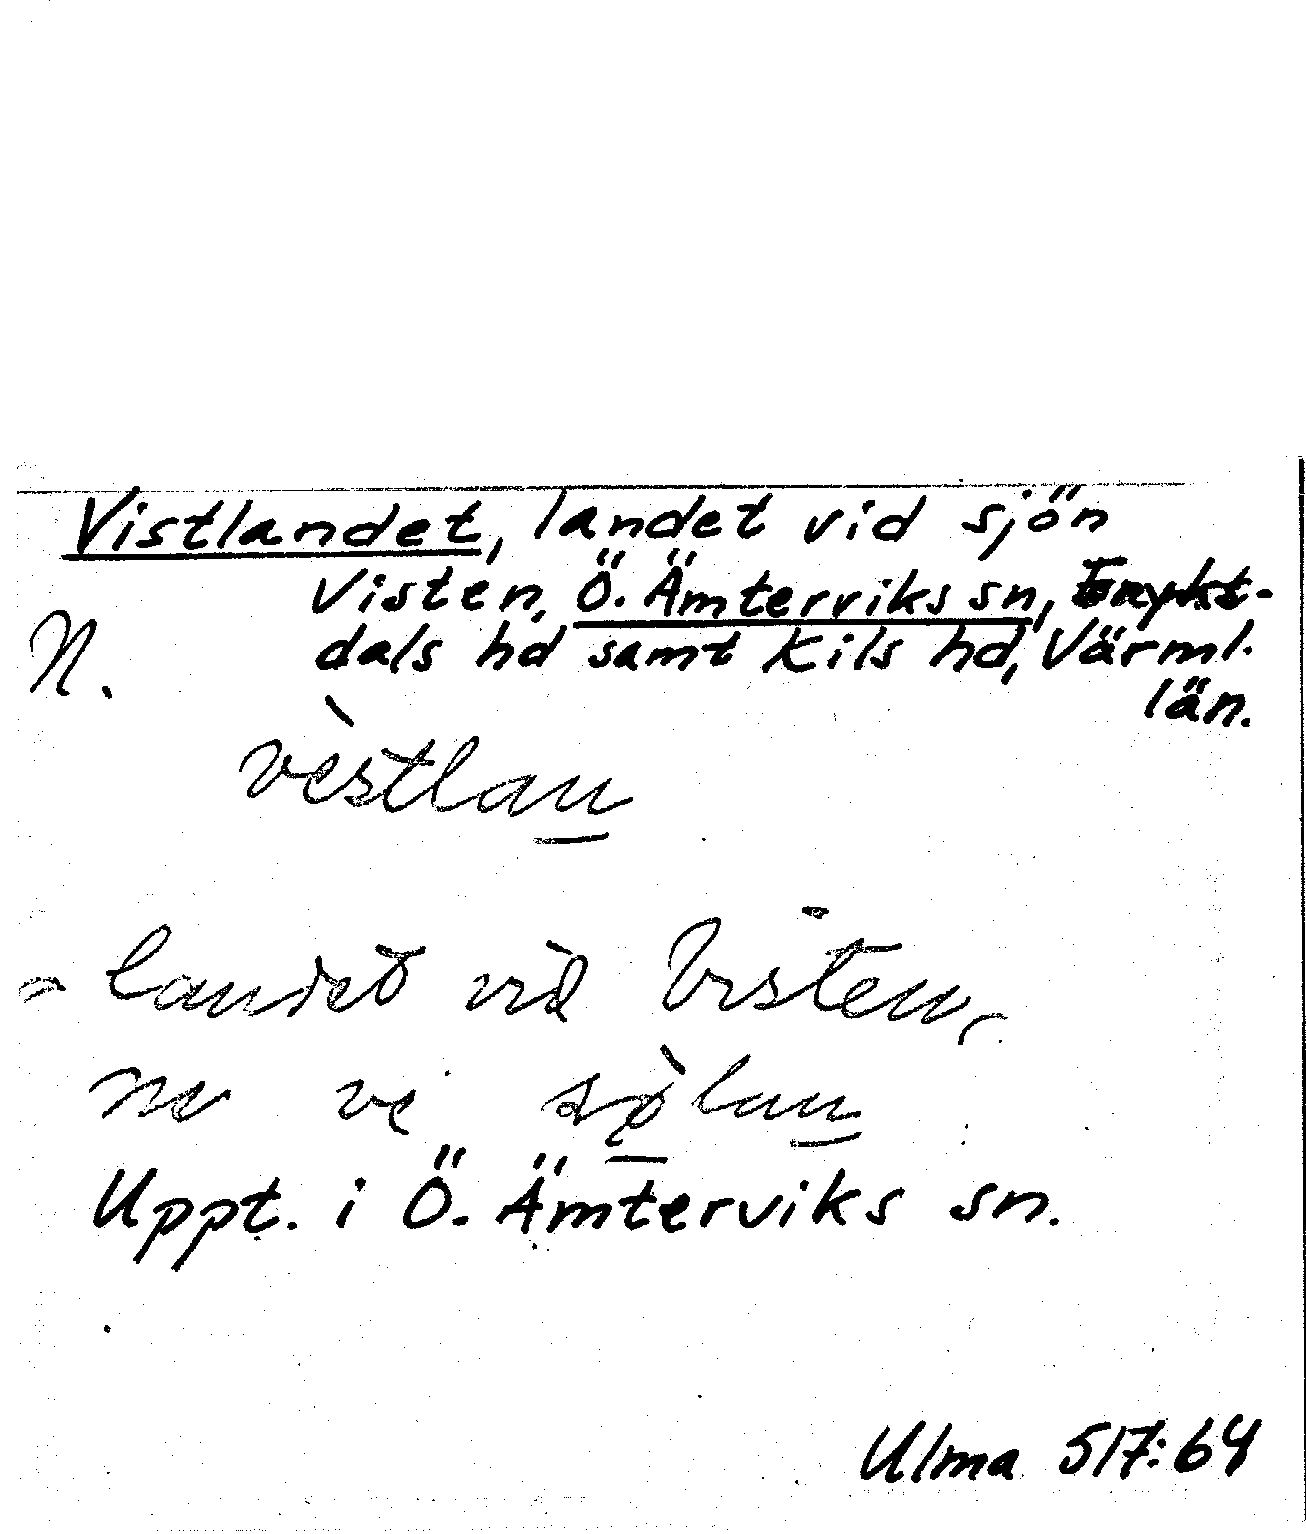 Vistlandet, landet vid sjön
Visten, Ö. Ämterviks sn, Frykt-
N. dals hd samt Kils hd, Värml.
län.
vèstlan
landet vid Visten,
ne ve
Uppt. i Ö. Ämterviks sn.
Ulma 517:64